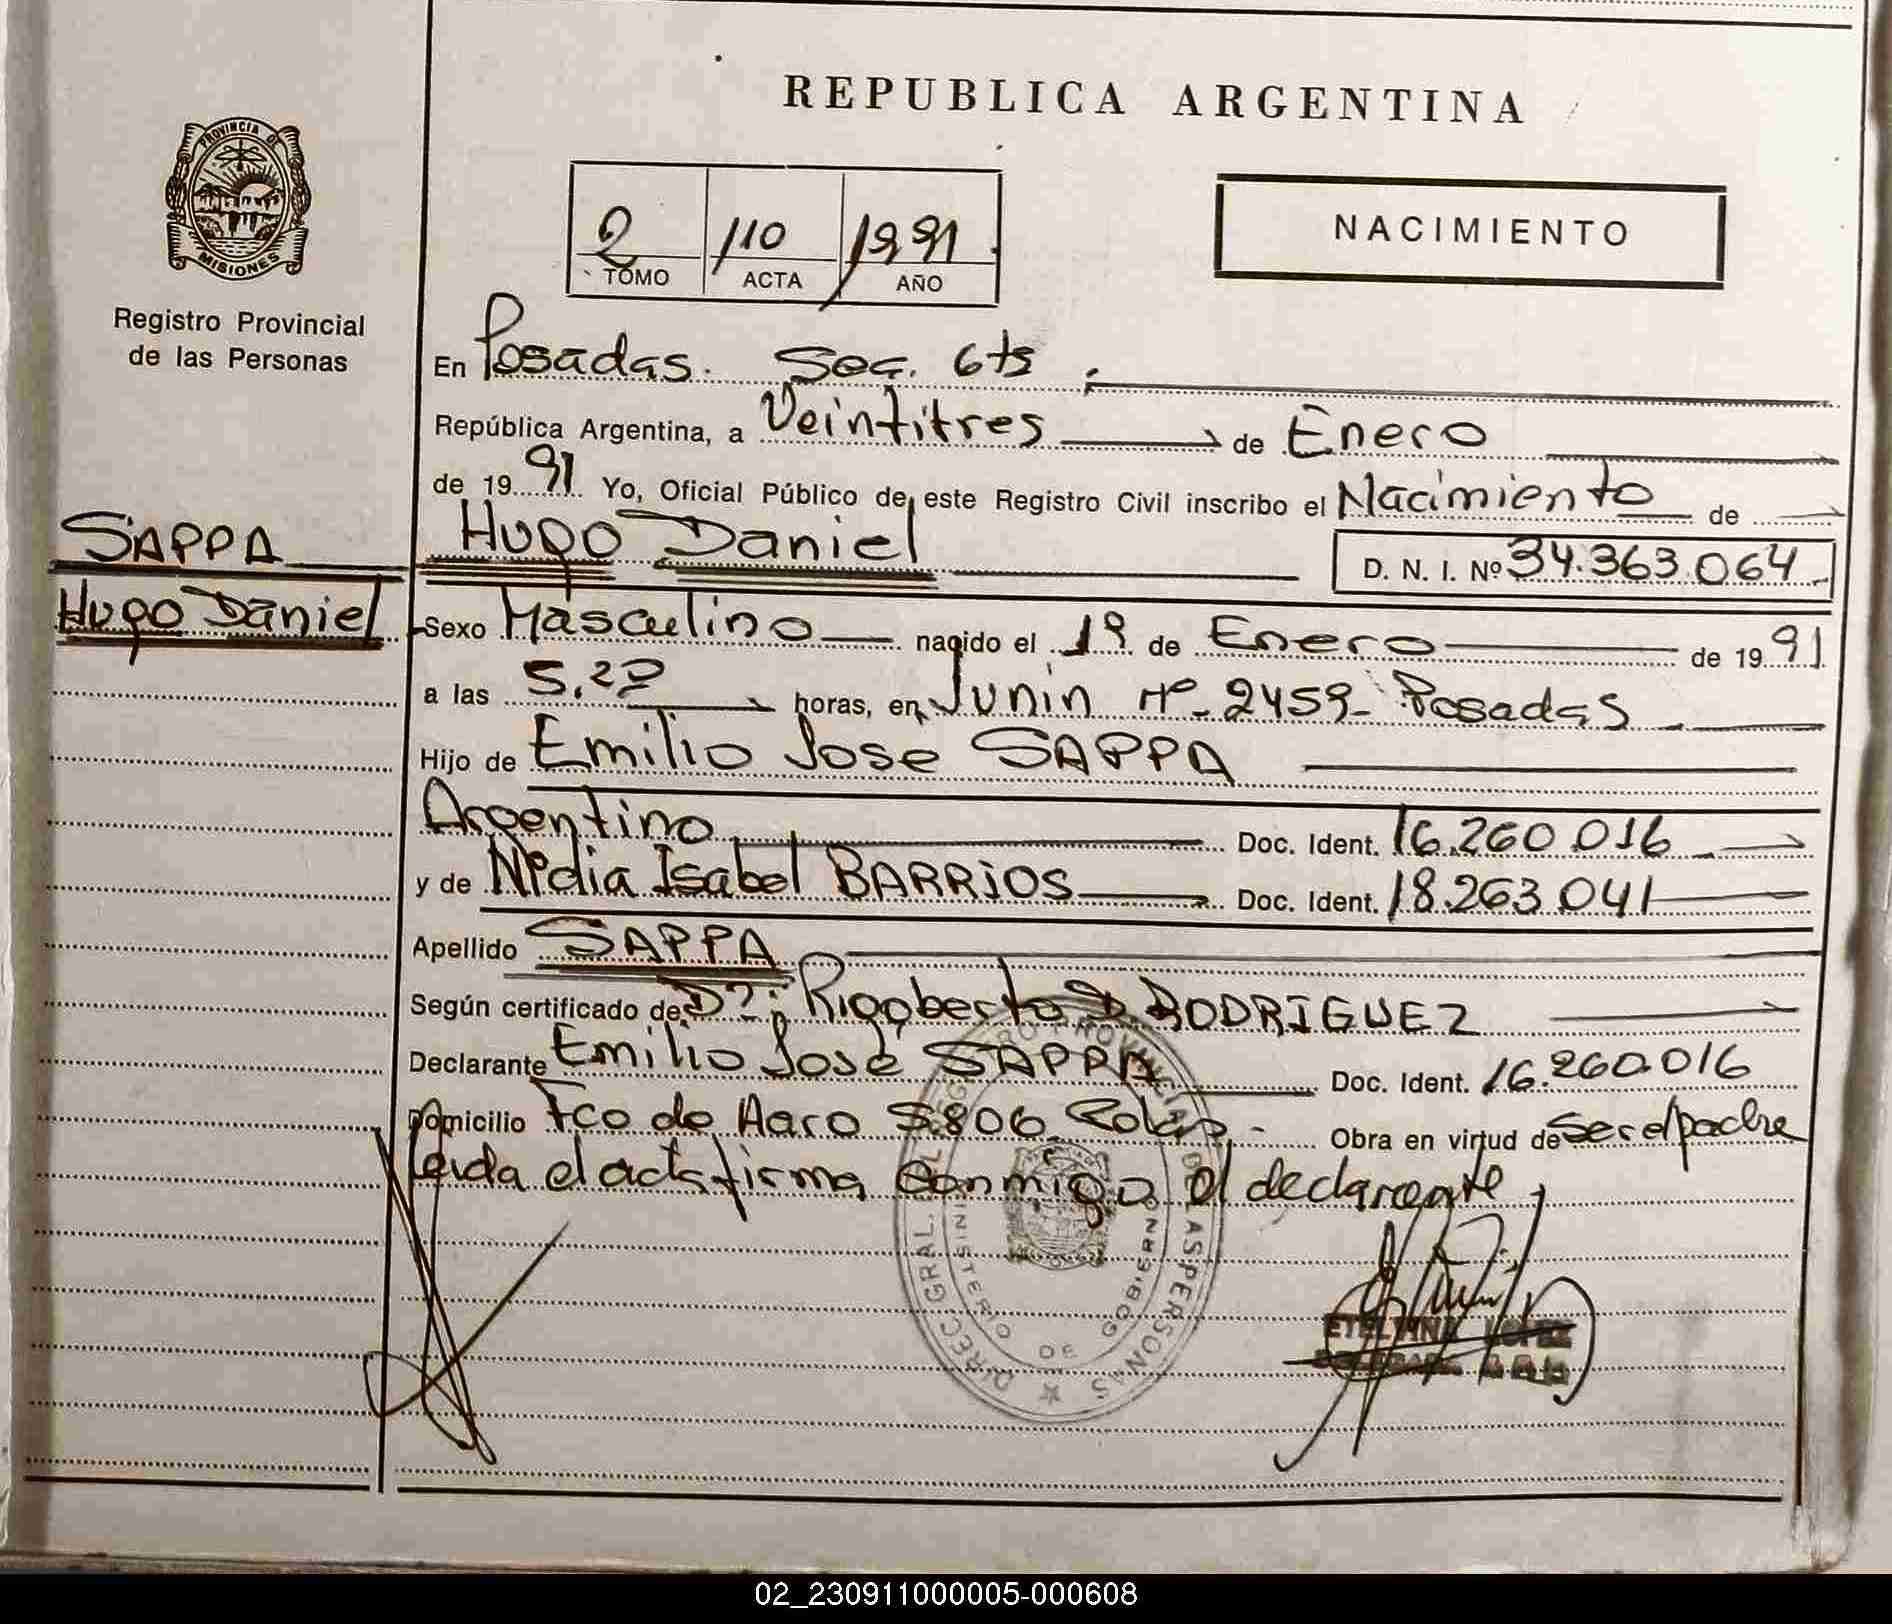 REPUBLICA ARGENTINA
PROVINCIA DE
MISIONES
Registro Provincial
de las Personas
NACIMIENTO
2 110 1991
TOMO ACTA AÑO
En Posadas. Sec. 6ta
República Argentina, a Veintitres de Enero
de 19 91 Yo, Oficial Público de este Registro Civil inscribo el Nacimiento de
SAPPA
Hugo Daniel
Hugo Daniel D. N. I. Nº 34.363.064
Sexo Masculino nacido el 19 de Enero de 19 91
a las 5,22 horas, en Junin Nº 2459 Posadas
Hijo de Emilio Jose SAPPA
Argentino Doc. Ident. 16.260.016
y de Nidia Isabel BARRIOS Doc. Ident. 18.263.041
Apellido SAPPA
Según certificado de Dr: Rigoberto D RODRIGUEZ
Declarante Emilio José SAPPA Doc. Ident. 16.260.016
Domicilio Fco de Haro 5.806 Obra en virtud de Ser el padre
Leida el acta firma conmigo el declarante
DIRECC. GRAL. REGISTRO PROVINCIAL DE LAS PERSONAS
MINISTERIO DE GOBIERNO
02_230911000005-000608